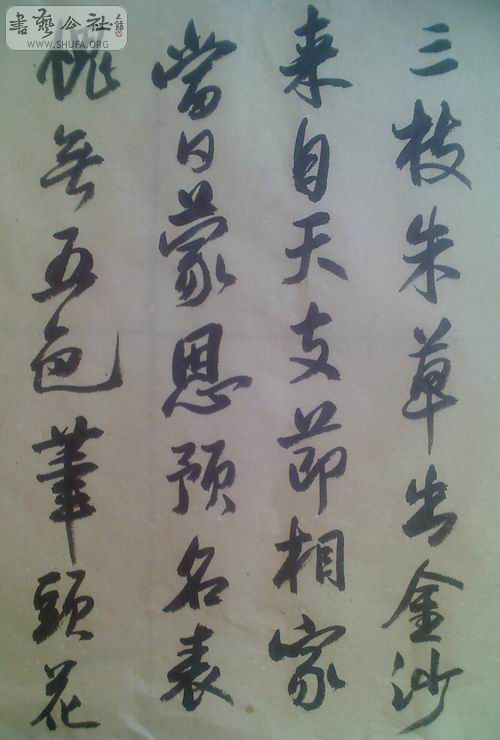 三枝朱草出金沙
来自天支節相家
當日蒙恩預名表
愧無五色筆頭花
書藝公社
WWW.SHUFA.ORG